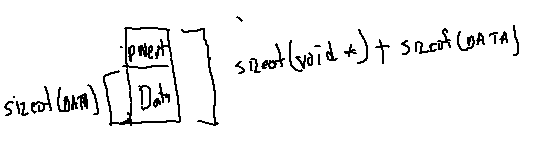 parent
Data
sizeof(DATA)
sizeof(void *) + sizeof(DATA)